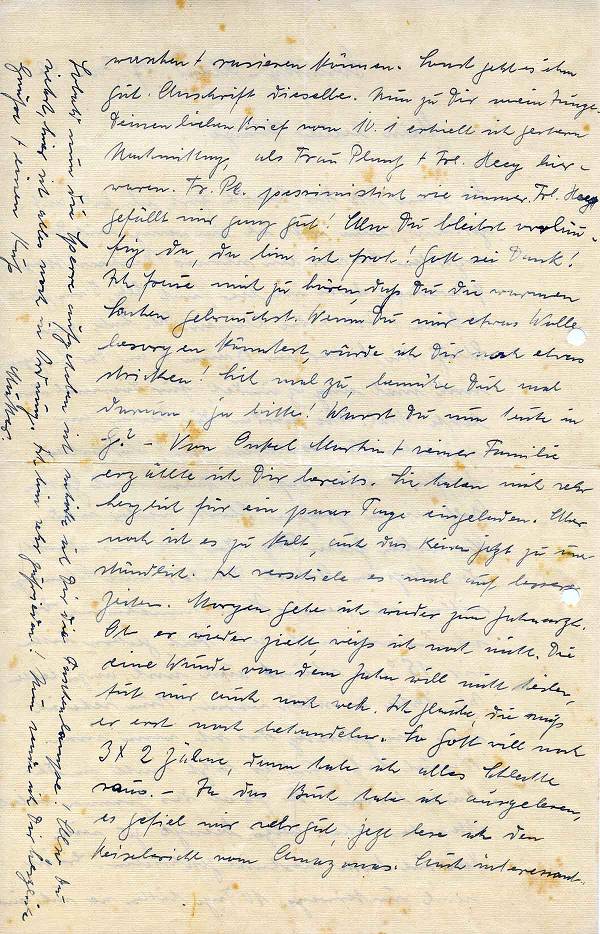 waschen + rasieren können. Sonst geht es ihm
gut. Anschrift dieselbe. Nun zu Dir mein Junge.
Deinen lieben Brief vom 10.1 erhielt ich gestern
Nachmittag, als Frau + Frl. Heey hier-
waren. Fr. Pl. pessimistisch wie immer. Frl. Heey
gefällt mir ganz gut! Also Du bleibst vorläu-
fig da, da bin ich froh! Gott sei Dank!
Ich freue mich zu hören, daß Du die warmen
Sachen gebrauchst. Wenn Du mir etwas Wolle
besorgen könntest, würde ich Dir noch etwas
stricken! Sieh mal zu, bemühe Dich mal
darum, ja bitte! Warst Du nun heute in
G.? – Von Onkel Martin + seiner Familie
erzählte ich Dir bereits. Sie haben mich sehr
herzlich für ein paar Tage eingeladen. Aber
noch ist es zu kalt, auch das Reisen jetzt zu um-
ständlich. Ich verschiebe es mal auf bessere
Zeiten. Morgen gehe ich wieder zum Zahnarzt.
Ob er wieder zieht, weiß ich noch nicht. Die
eine Wunde von dem Zahn will nicht heilen,
tut mir auch noch weh. Ich glaube, die muß
er erst noch behandeln. So Gott will noch
3 x 2 Zähne, dann habe ich alles Schlechte
raus. – Ja das Buch habe ich ausgelesen,
es gefiel mir sehr gut, jetzt lese ich den
Reisebericht vom Amazonas. Auch interessant.
Sobald nun die Sperre aufgehoben ist schicke ich Dir die Taschenlampe! Also Du
siehst, hier ist alles noch in Ordnung. Ich bin sehr zufrieden! Nun sende ich Dir herzliche
Grüße + einen Kuß